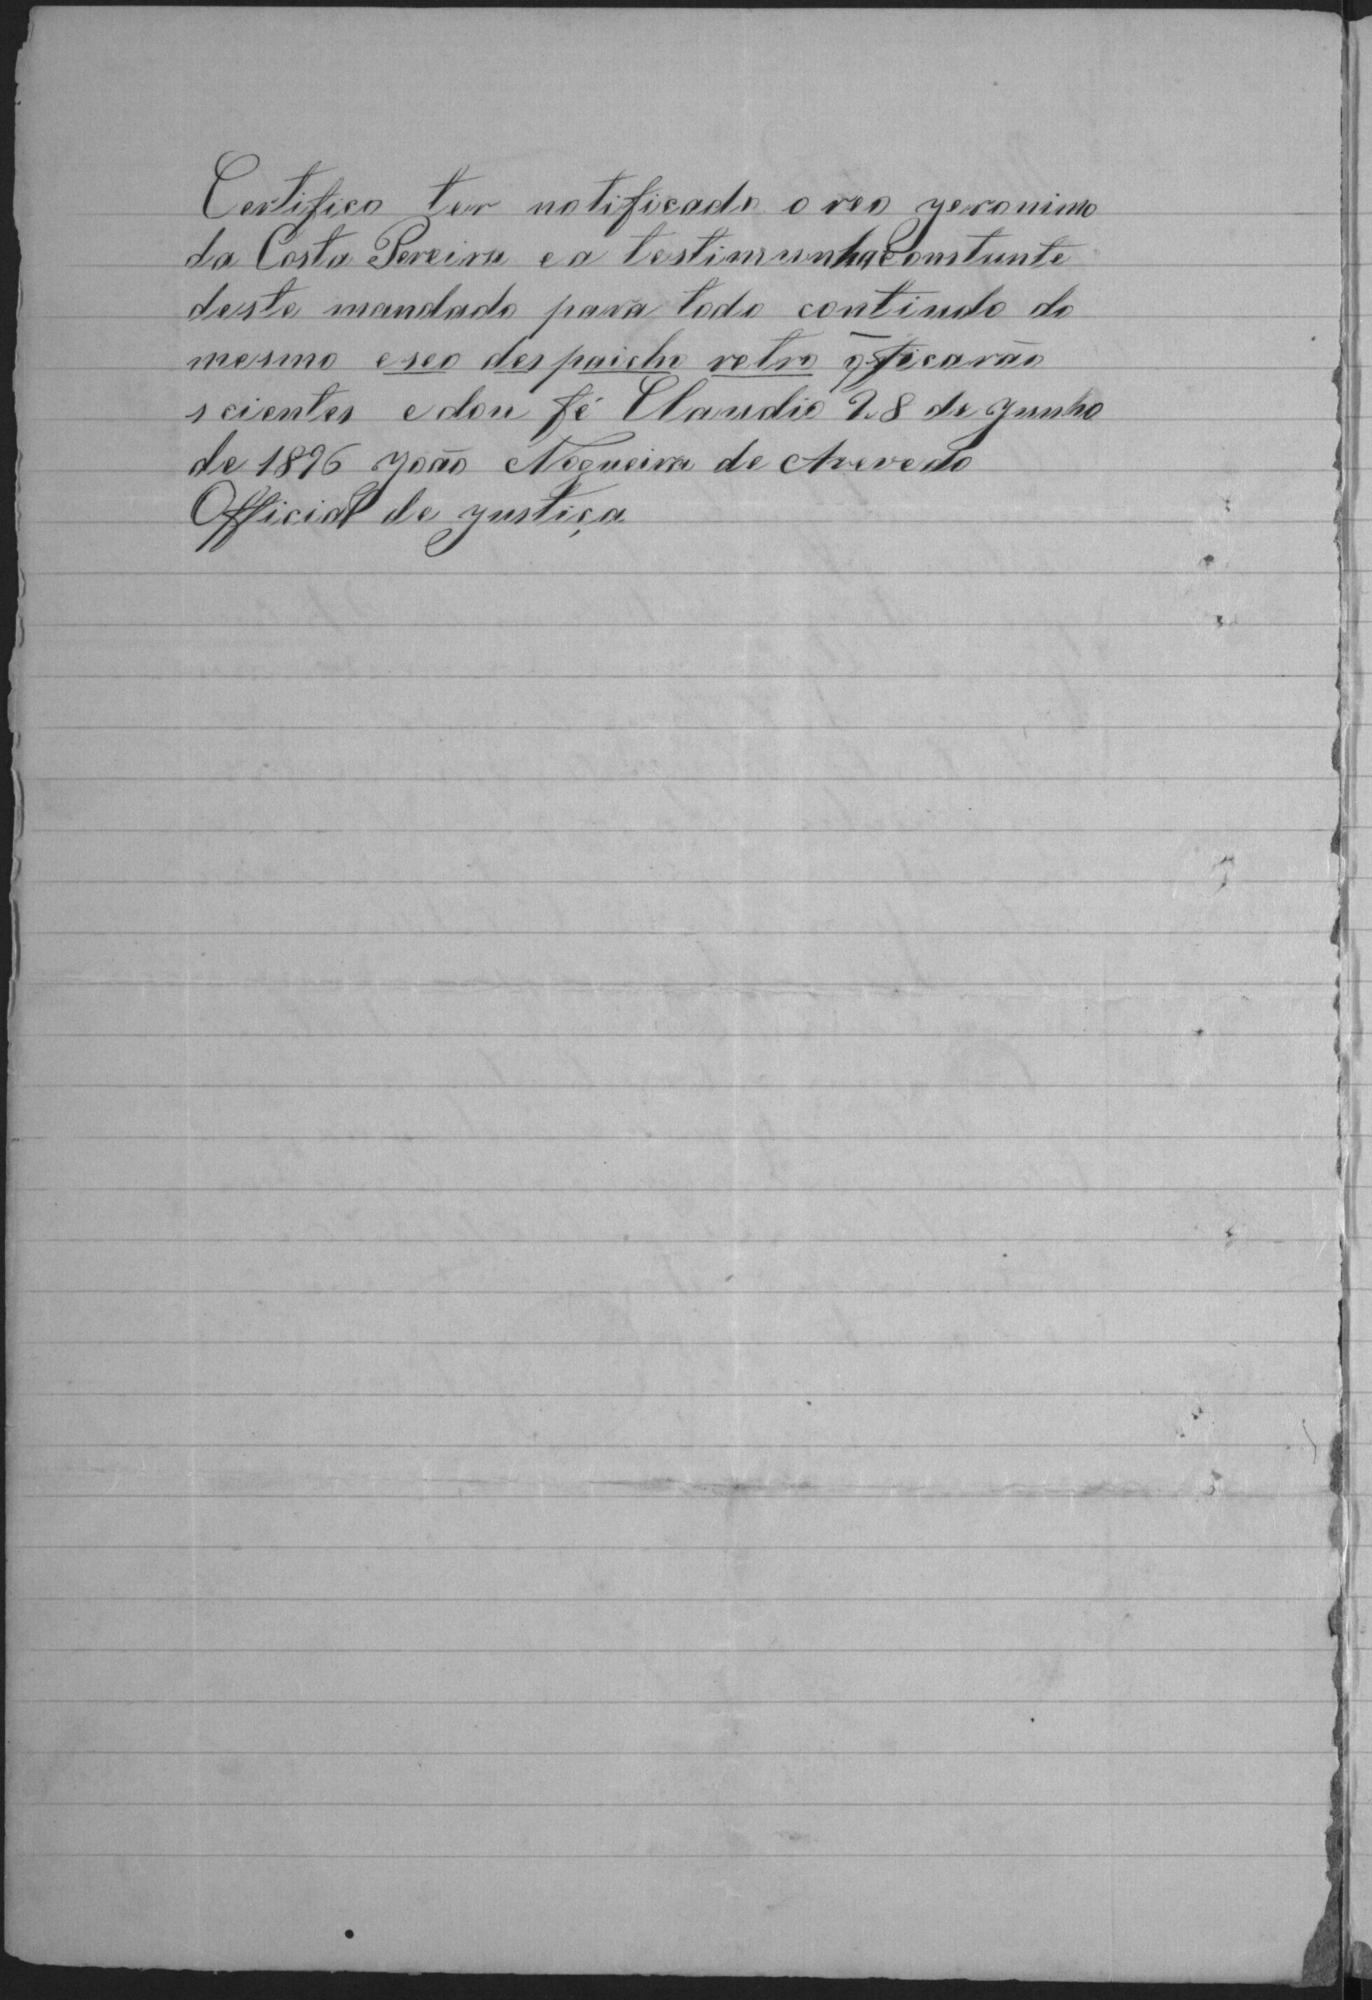 Certifico ter notificado o reo Jeronimo
da Costa Pereira e a testimunha Constante
deste mandado para todo contiudo do
mesmo e seo despaicho retro q̄ ficarão
scientes e dou fé Claudio 28 de Junho
de 1896 João Nogueira de Azevedo
Official de justiça